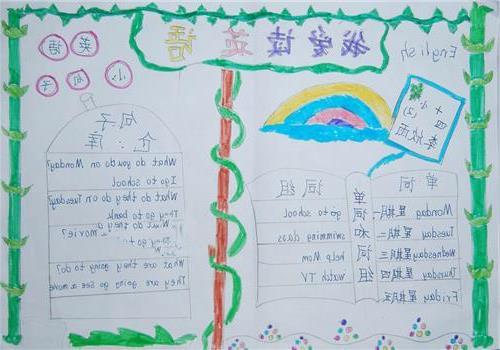 English
我爱读英语
英语
小句子
十四小
(2)
单词
Monday 星期一
Tuesday 星期二
Wednesday 星期三
Thursday 星期四
Friday 星期五
单词和词组
词组
go to school
swimming class
help Mom
watch TV
句子
仓:库
What do you do on Monday?
I go to school
What do they do on Tuesday
They go to bank
What do they
movie?
They go to
What are they going to do?
They are going see a move